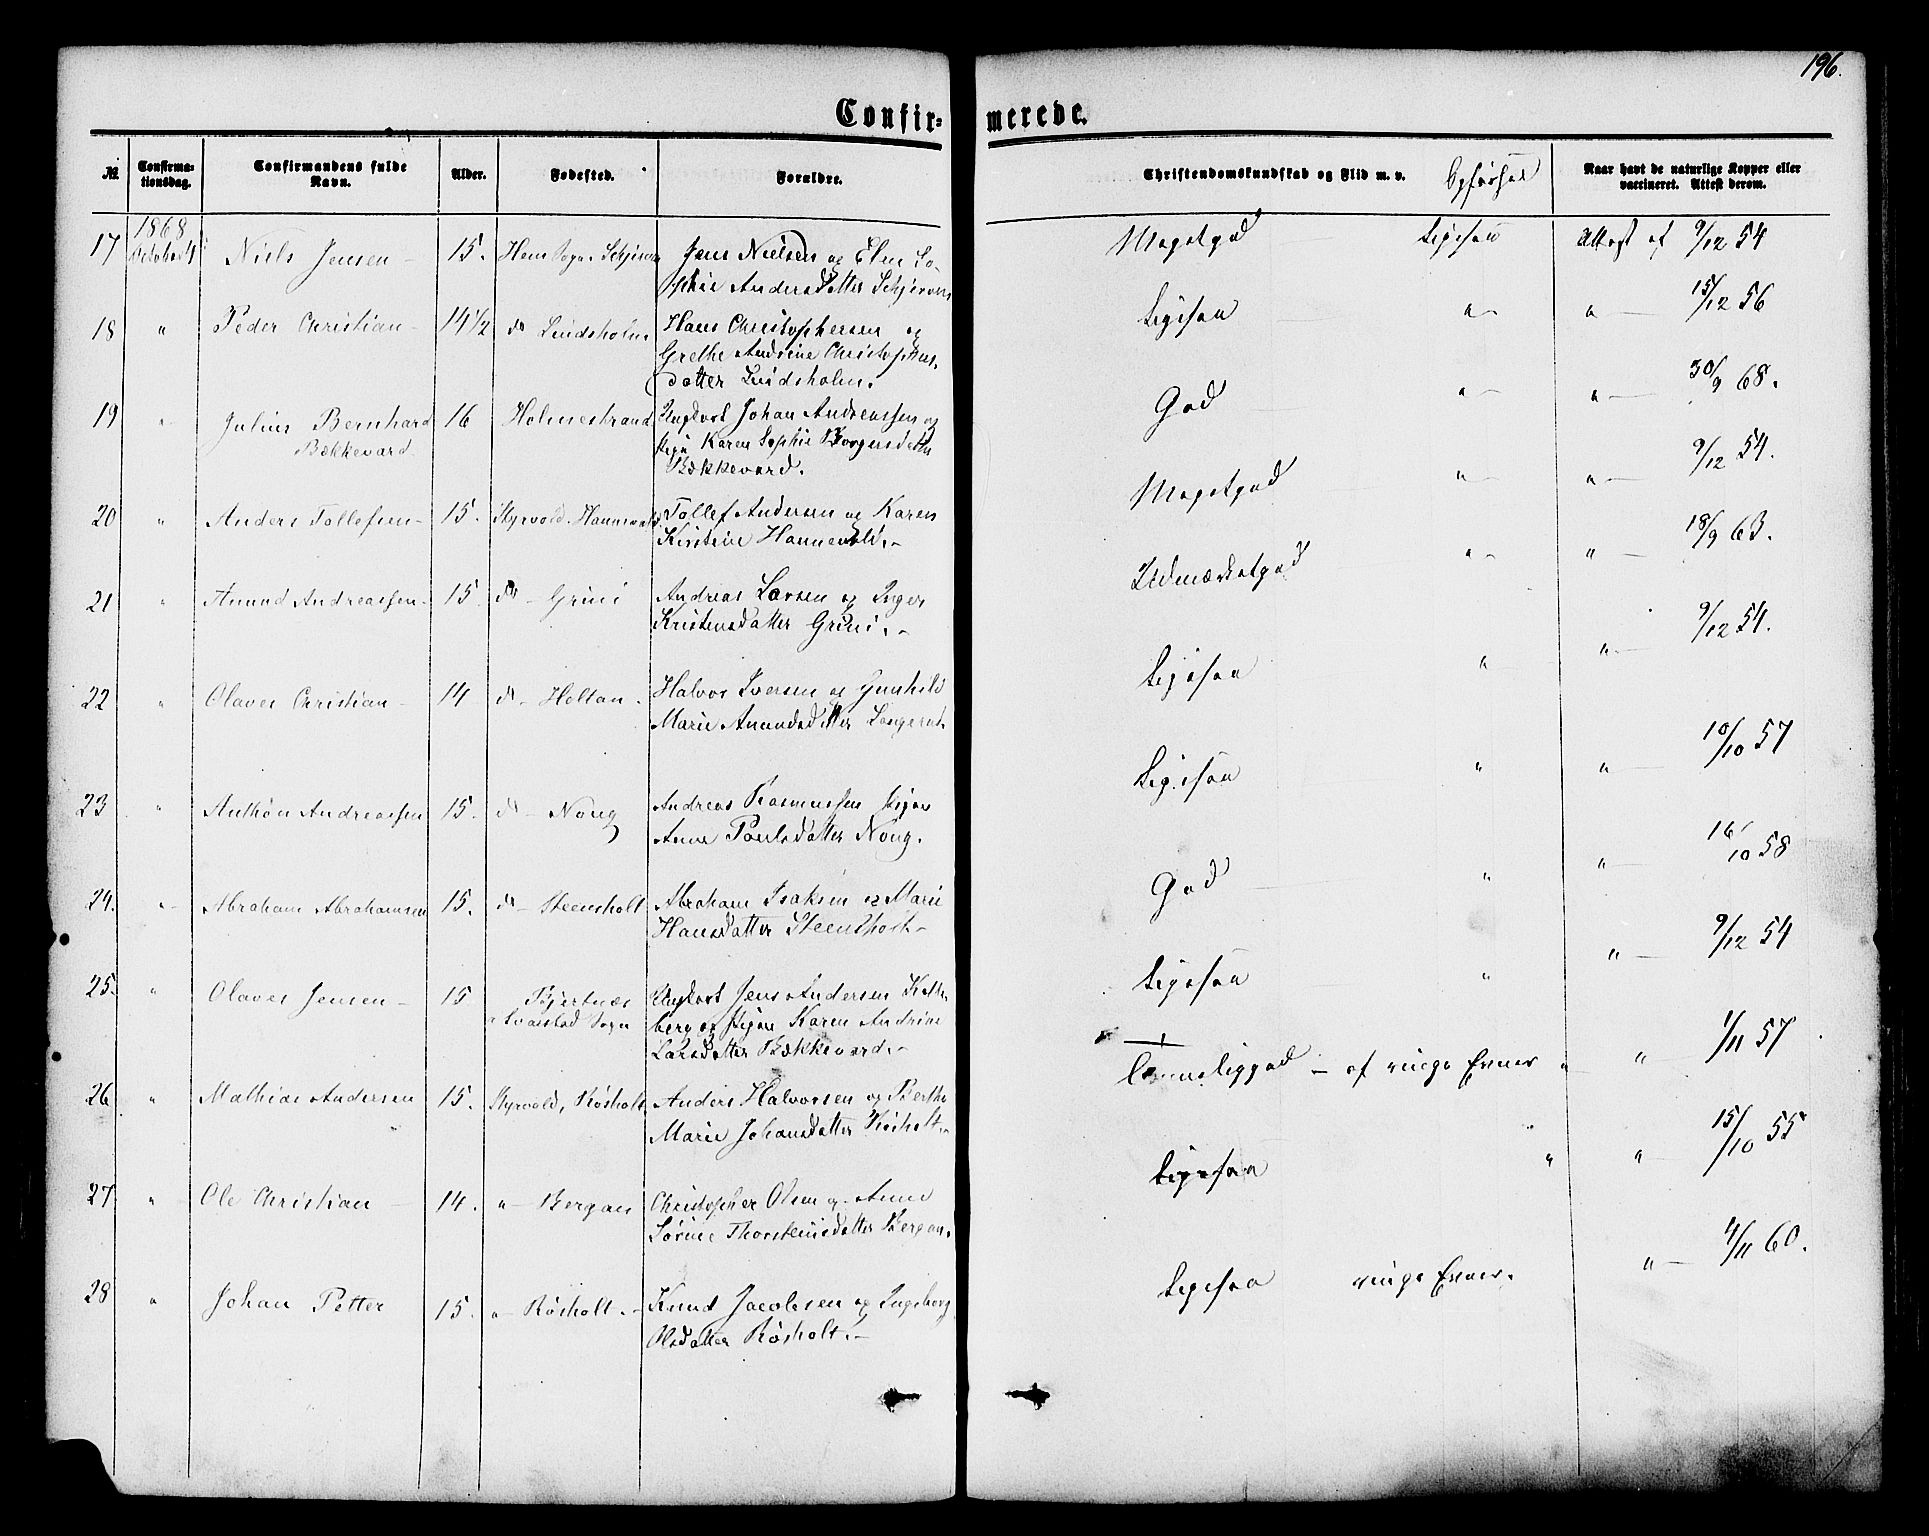 196.
Confirmerede.
No.
Confirmationsdag.
Confirmandens fulde Navn.
Alder.
Fødested.
Forældre.
Christendomskundskab og Flid m. v. Opførsel
Naar havt de naturlige Kopper eller vaccineret. Attest derom.
1868
17 October 4 Niels Jensen - 15. Hem Sogn Jens Nielsen og Elen So- Meget god Attest af 9/12 54
phie Andersdatter
18 " Peder Christian - 14 1/2 do Lindsholm Hans Christophersen og " " 15/12 56
Grethe Andrine Christophers-
datter Lindsholm.
19 " Julius Bernhard 16 Holmestrand Ungkarl Johan Andreassen og God " " 30/9 68.
Bækkevard Pige Karen Sophie
Bækkevard.
20 " Anders Tollefsen - 15. Styrvold Hannevold Tollef Andersen og Karen Meget god " " 9/12 54.
Kirstine Hannevold. -
21 " Anund Andreassen - 15 do - Grini Andreas Larsen og Inger Udmærket god " " 18/9 63.
Kristensdatter Grini. -
22 " Olaves Christian - 14 do - Holtan. Halvor Iversen og Gunhild Ligesaa " " 9/12 54.
Marie Anundsdatter
23 " Anthon Andreassen 15. do - Nøug Andreas Rasmussen Ligesaa " " 10/10 57
Anne Poulsdatter Nøug.
24. " Abraham Abrahamsen 15. do - Steensholt Abraham Isaksen og Marie God " " 16/10 58
Hansdatter Steensholt -
25. " Olaves Jensen - 15 Bjertnæs Ungkarl Jens Andersen Ligesaa " " 9/12 54
Svarstad Sogn berg og Pige Karen Andrine
Larsdatter Bækkevard. -
26 " Mathias Andersen 15. Styrvold, Røsholt Anders Halvorsen og Berthe - af ringe Evner " " 1/11 57
Marie Johansdatter Røsholt. -
27 " Ole Christian - 14. " - Bergan Christopher Olsen og Anne Ligesaa " " 15/10 55
Sørine Thorsteinsdatter Bergan.
28 " Johan Petter 15. " - Røsholt. - Knud Jacobsen og Ingeborg Ligesaa ringe Evner. " 4/11 60.
Olsdatter Røsholt. -